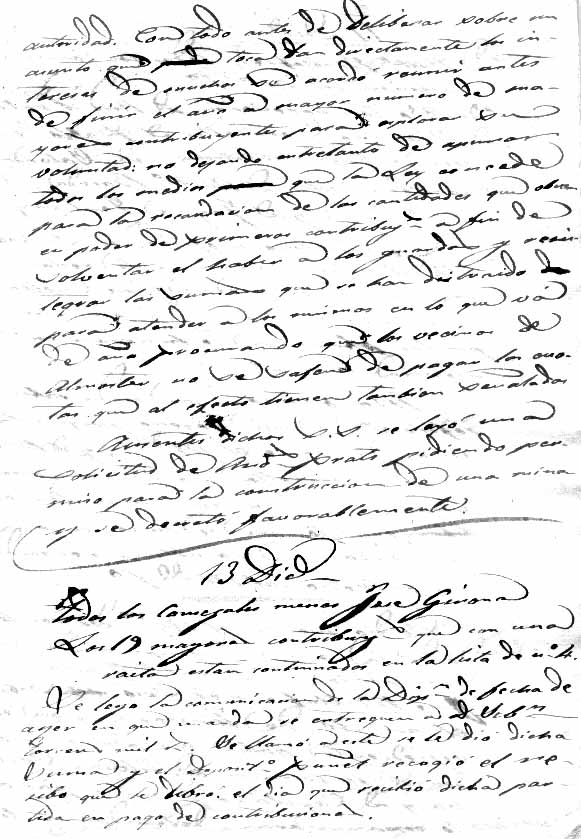 autoridad. Con todo antes de deliberar sobre un
asunto que toca tan directamente los in-
tereses de muchos se acordó reunir antes
de finir el año a mayor numero de ma-
yores contribuyentes para explorar su
voluntad: no dejando entretanto de apurar
todos los medios que la Ley concede
para la recaudacion de las cantidades que obran
en poder de primeros contribuy.s a fin de
solventar el haber a los guardas y rein-
tegrar las sumas que se han distraido
para atender a los mismos en lo que va
de año procurando que los vecinos de
Almoster no se safen de pagar las cuo-
tas que al efecto tienen tambien señaladas
Ausentes dichos S.S. se leyó una
solicitud de And. Prats pidiendo per-
miso para la construccion de una mina
y se decretó favorablemente.
13 Dic
Todos los Concejales menos José Girona
Los 19 mayores contribuy.s que con una
raita estan continuados en la lista de n.º 4.
Se leyo la comunicacion de la Dip.n de fecha de
ayer en que manda se entreguen a d.
mil r. Se llamó a este se le dió dicha
suma y el Deposit.o recogió el re-
cibo que se libro el dia que recibió dicha par-
tida en pago de contribuciones.